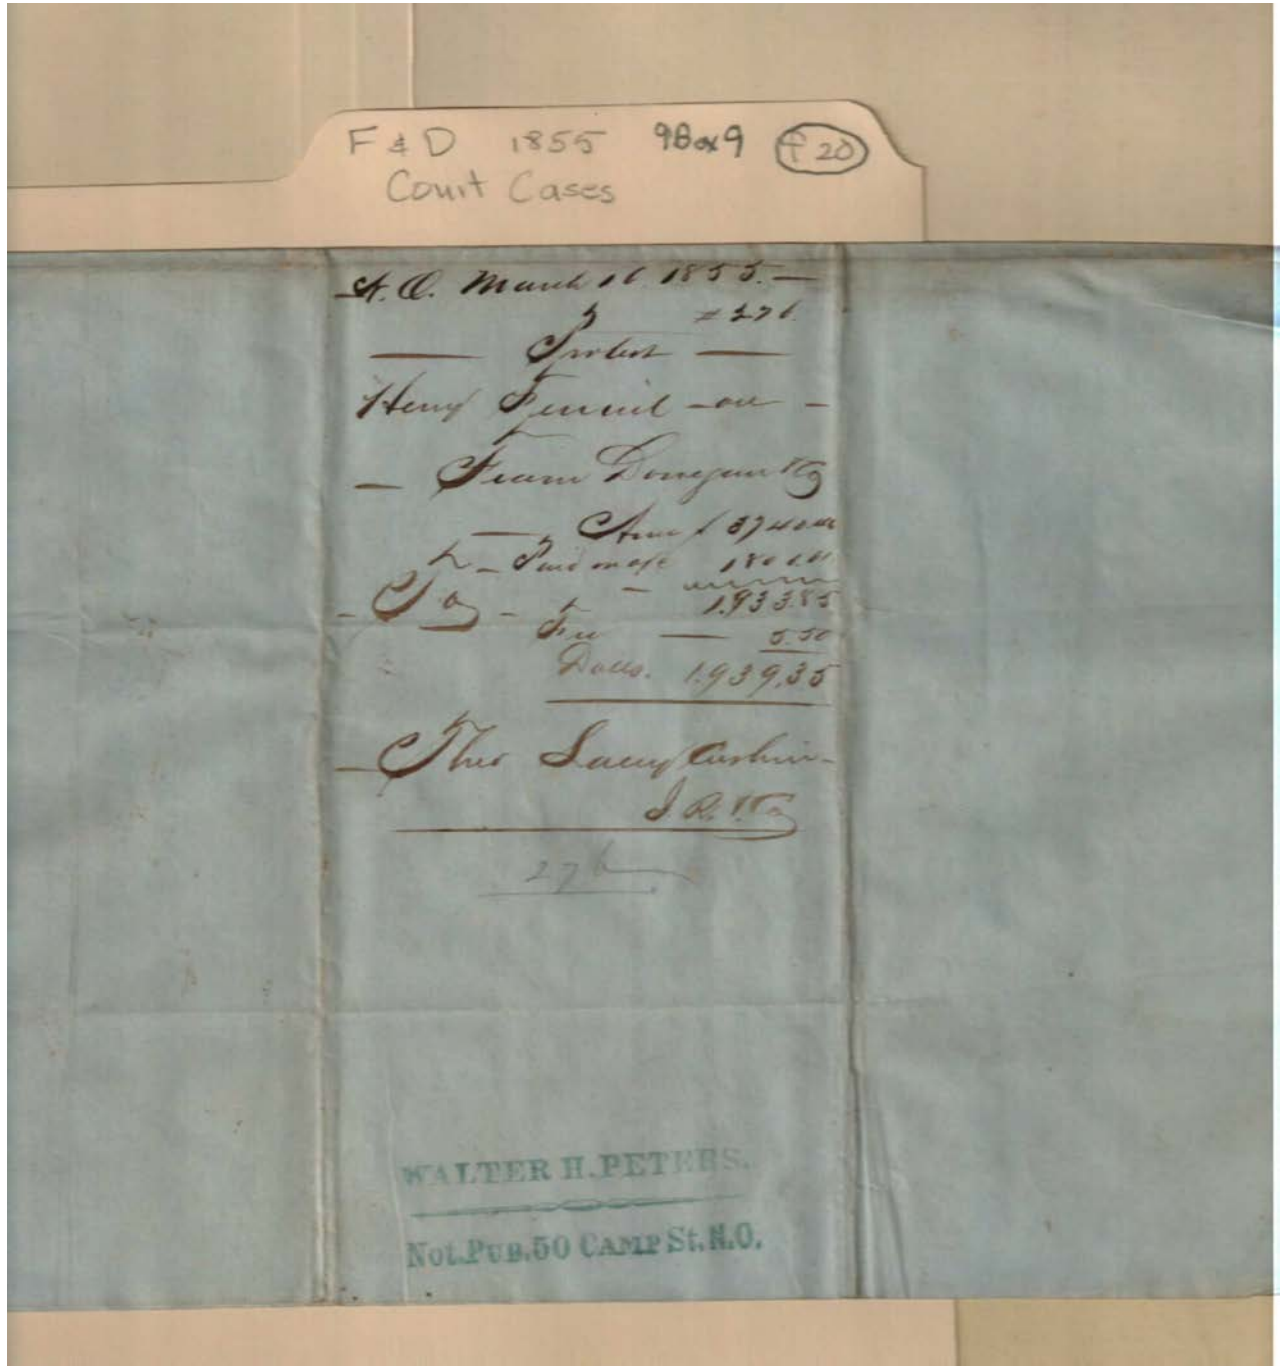 F & D 1855 9Box9 f 20
Court Cases
N.O. March 16 1855.
# 276
Protest
Henry
Fearn Donegan & Co
Amt $ 3740
Paid on a/c
1.933.85
Fee 5.50
Dolls. 1.939,35
Theo Lacey Cashier
276
WALTER H. PETERS.
Not. Pub. 50 CAMP St. N.O.